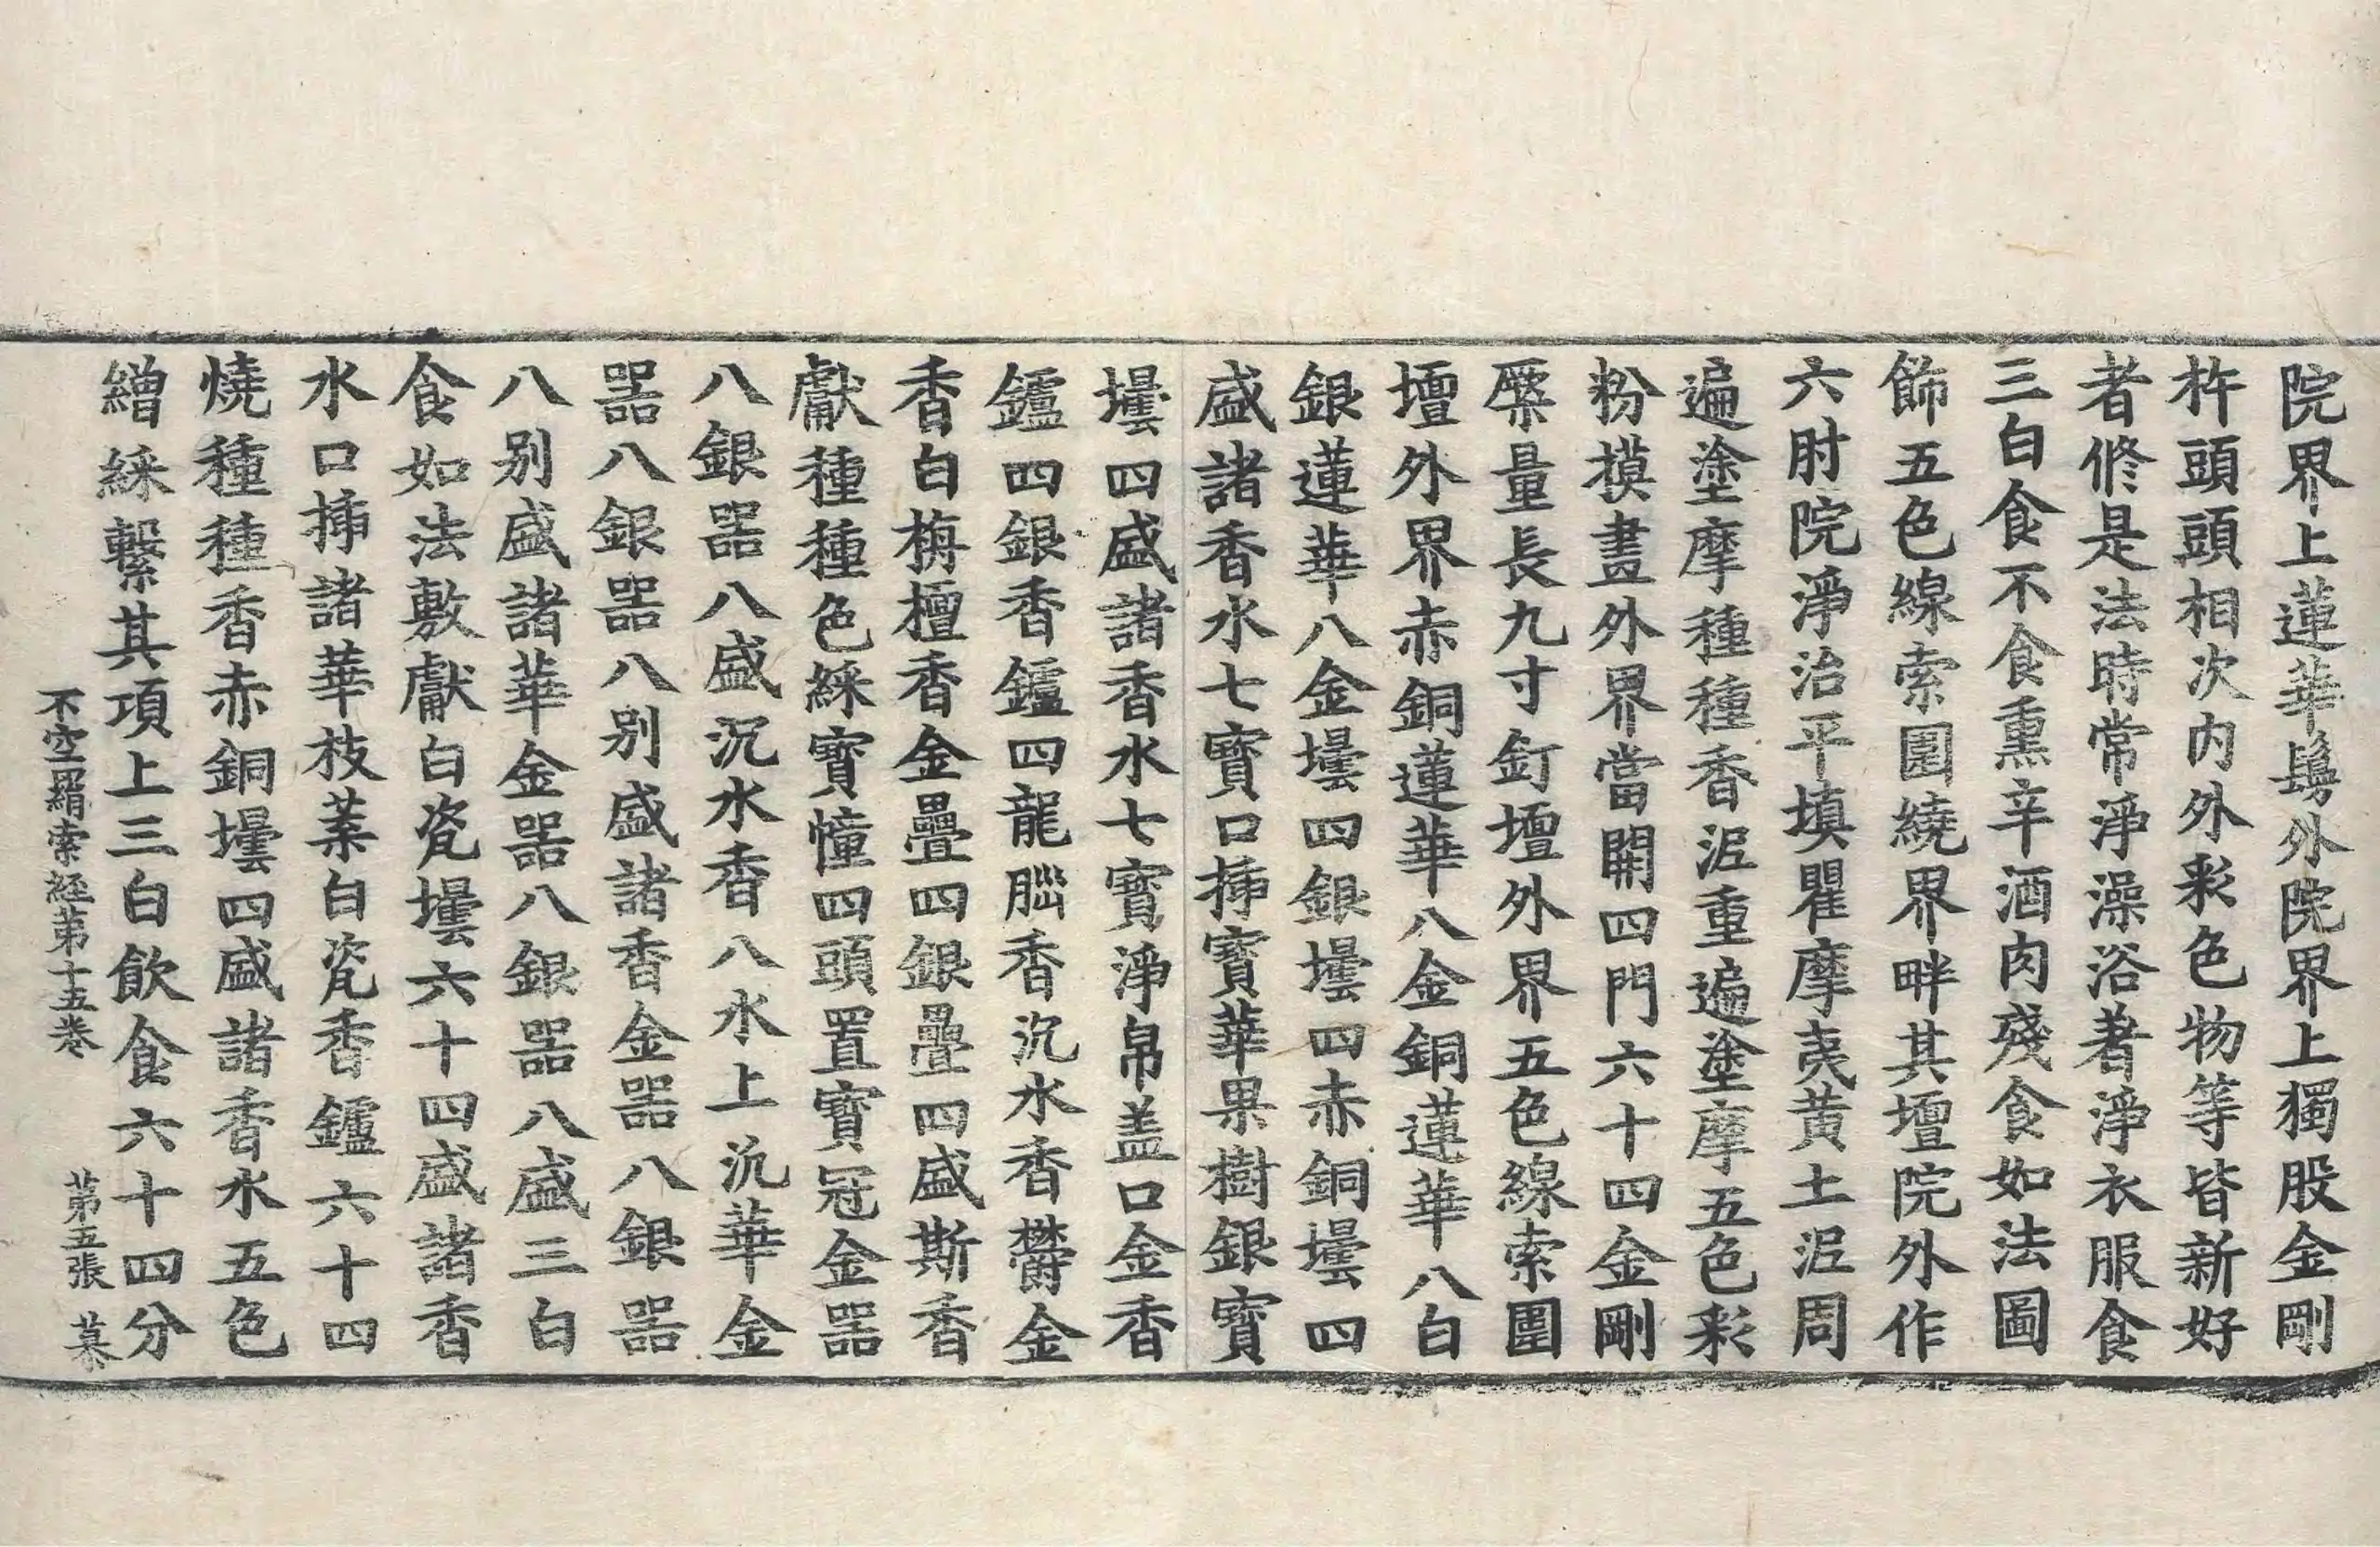 院界上蓮華鬘外院界上獨股金剛
杵頭頭相次内外彩色物等皆新好
者修是法時常淨澡浴著淨衣服食
三白食不食熏辛酒肉殘食如法圖
飾五色線索圍繞界畔其壇院外作
六肘院淨治平填瞿摩夷黃土泥周
遍塗摩種種香泥重遍塗摩五色彩
粉摸畫外界當開四門六十四金剛
橜量長九寸釘壇外界五色線索圍
壇外界赤銅蓮華八金銅蓮華八白
銀蓮華八金壜四銀壜四赤銅壜四
盛諸香水七寶口揷寶華果樹銀寶
壜四盛諸香水七寶淨帛盖口金香
鑪四銀香鑪四龍腦香沉水香欝金
香白栴檀香金疊四銀疊四盛斯香
獻種種色綵寶幢四頭置寶冠金器
八銀器八盛沉水香八水上沉華金
器八銀器八别盛諸香金器八銀器
八别盛諸華金器八銀器八盛三白
食如法敷獻白瓷壜六十四盛諸香
水口揷諸華枝葉白瓷香鑪六十四
燒種種香赤銅壜四盛諸香水五色
繒綵繫其項上三白飲食六十四分
不空羂索経第十五卷 第五張 慕